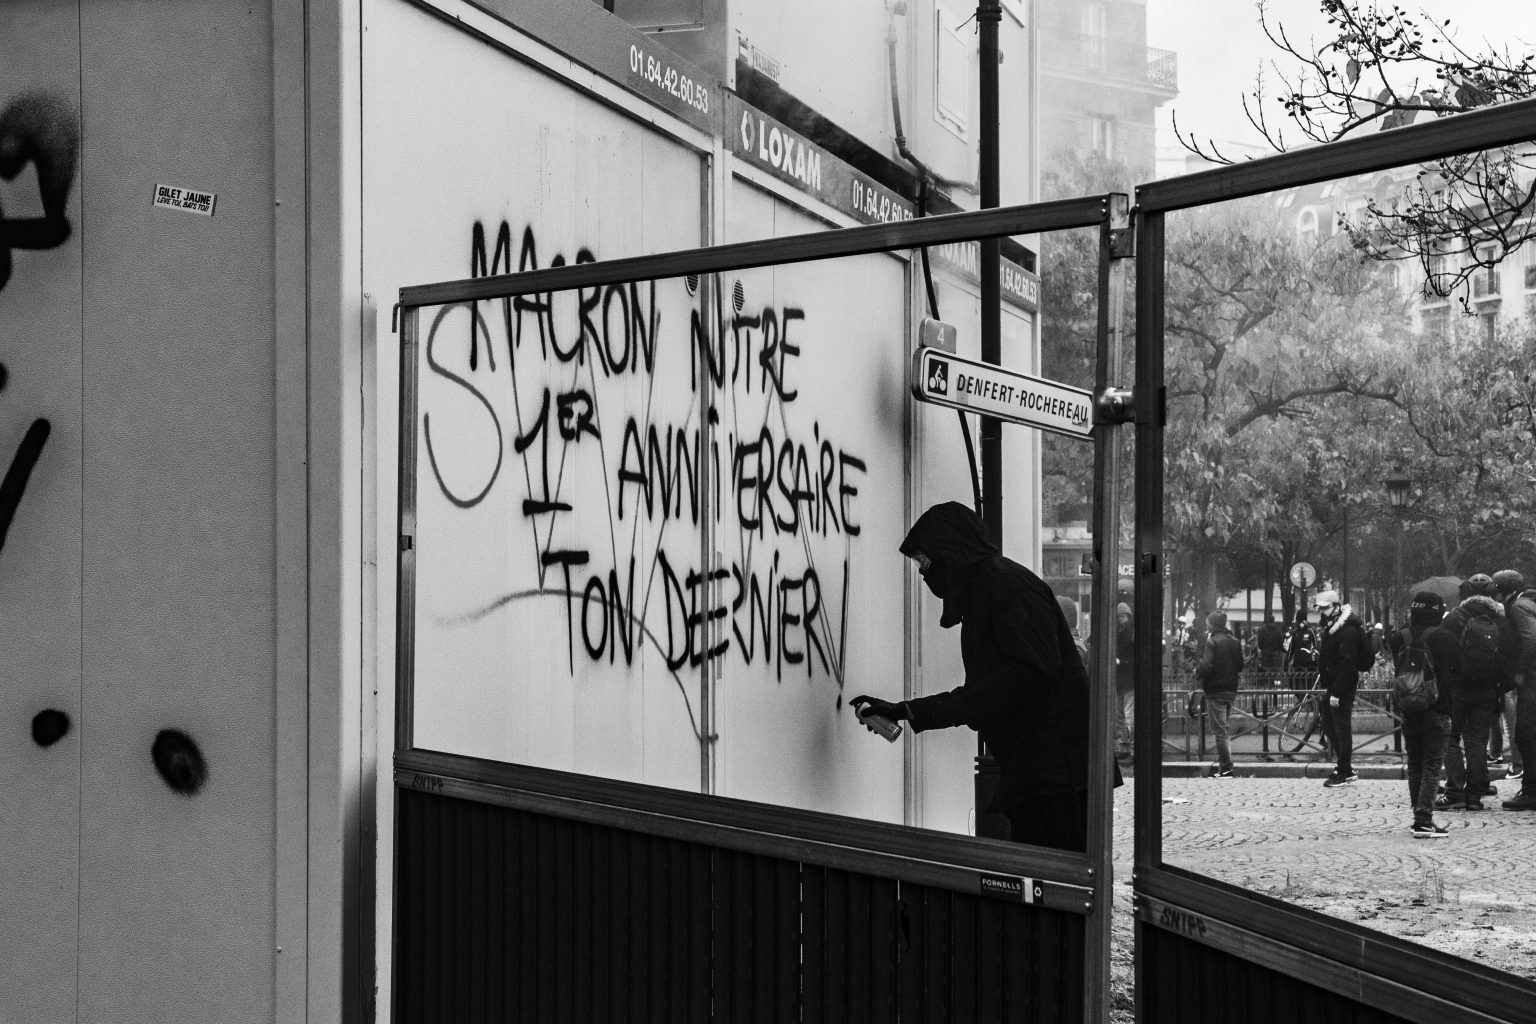 GILET JAUNE
LEVE TOI, BATS TOI!
01.64.42.60.53
LOXAM
01.64.42.60.53
LOXAM
01.64.42.60.53
MACRON NOTRE
1ER ANNIVERSAIRE
TON DERNIER!
4
DENFERT-ROCHEREAU
SNTPP
FORNELLS
SNTPP